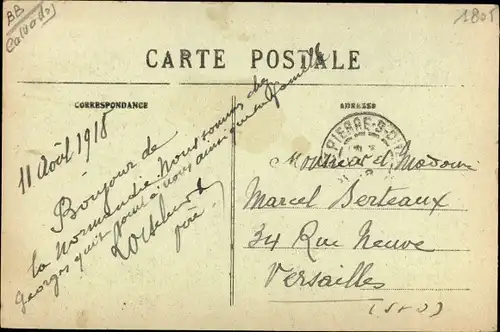 BB
Calvados)
1805
CARTE POSTALE
CORRESPONDANCE
ADRESSE
11 Août 1918
Bonjour de
la Normandie. Nous sommes chez
Georges qui se joint à nous ainsi que sa famille
PIERRE-S-DIVES
Monsieur et Madame
Marcel Berteaux
34 Rue Neuve
Versailles
(S & O)